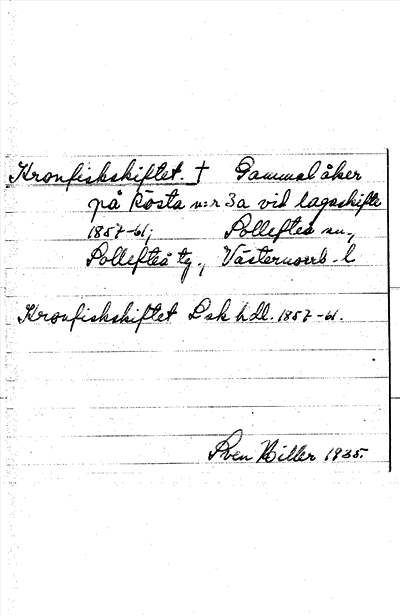 Kronfiskskiftet. † Gammal åker
på Rosta n:r 3a vid lagaskifte
1857-61; Sollefteå sn.,
Sollefteå tg., Västernorrb. l
Kronfiskskiftet Lsk hdl. 1857-61.
Sven Hiller 1935.